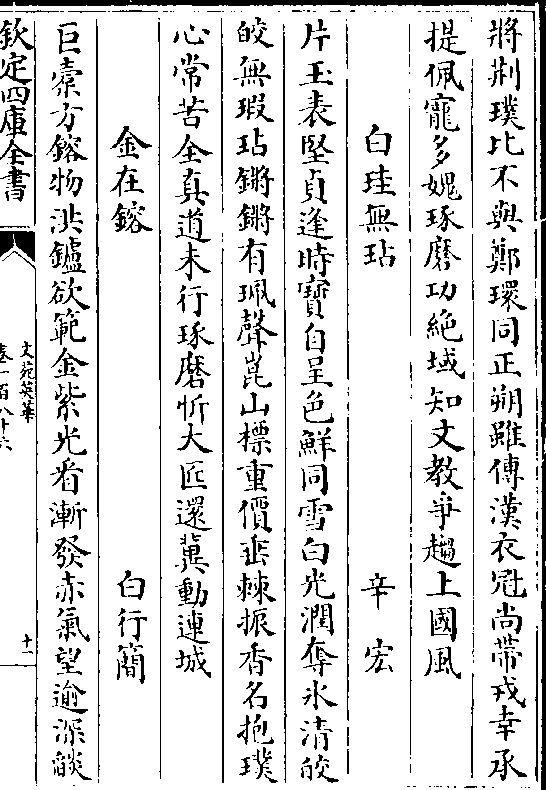 將荆璞比不與鄭環同正朔雖傳漢衣冠尚帶戎幸承
提佩寵多媿琢磨功絶域知文教爭趨上國風
白珪無玷　辛宏
片玉表堅貞逢時寶自呈色鮮同雪白光潤奪氷清皎
皎無瑕玷鏘鏘有珮聲崑山標重價垂棘振香名抱璞
心常苦全真道未行琢磨忻大匠還冀動連城
金在鎔　白行簡
巨橐方鎔物洪鑪欲範金紫光看漸發赤氣望逾深燄
欽定四庫全書
文苑英華
卷一百八十六
十一